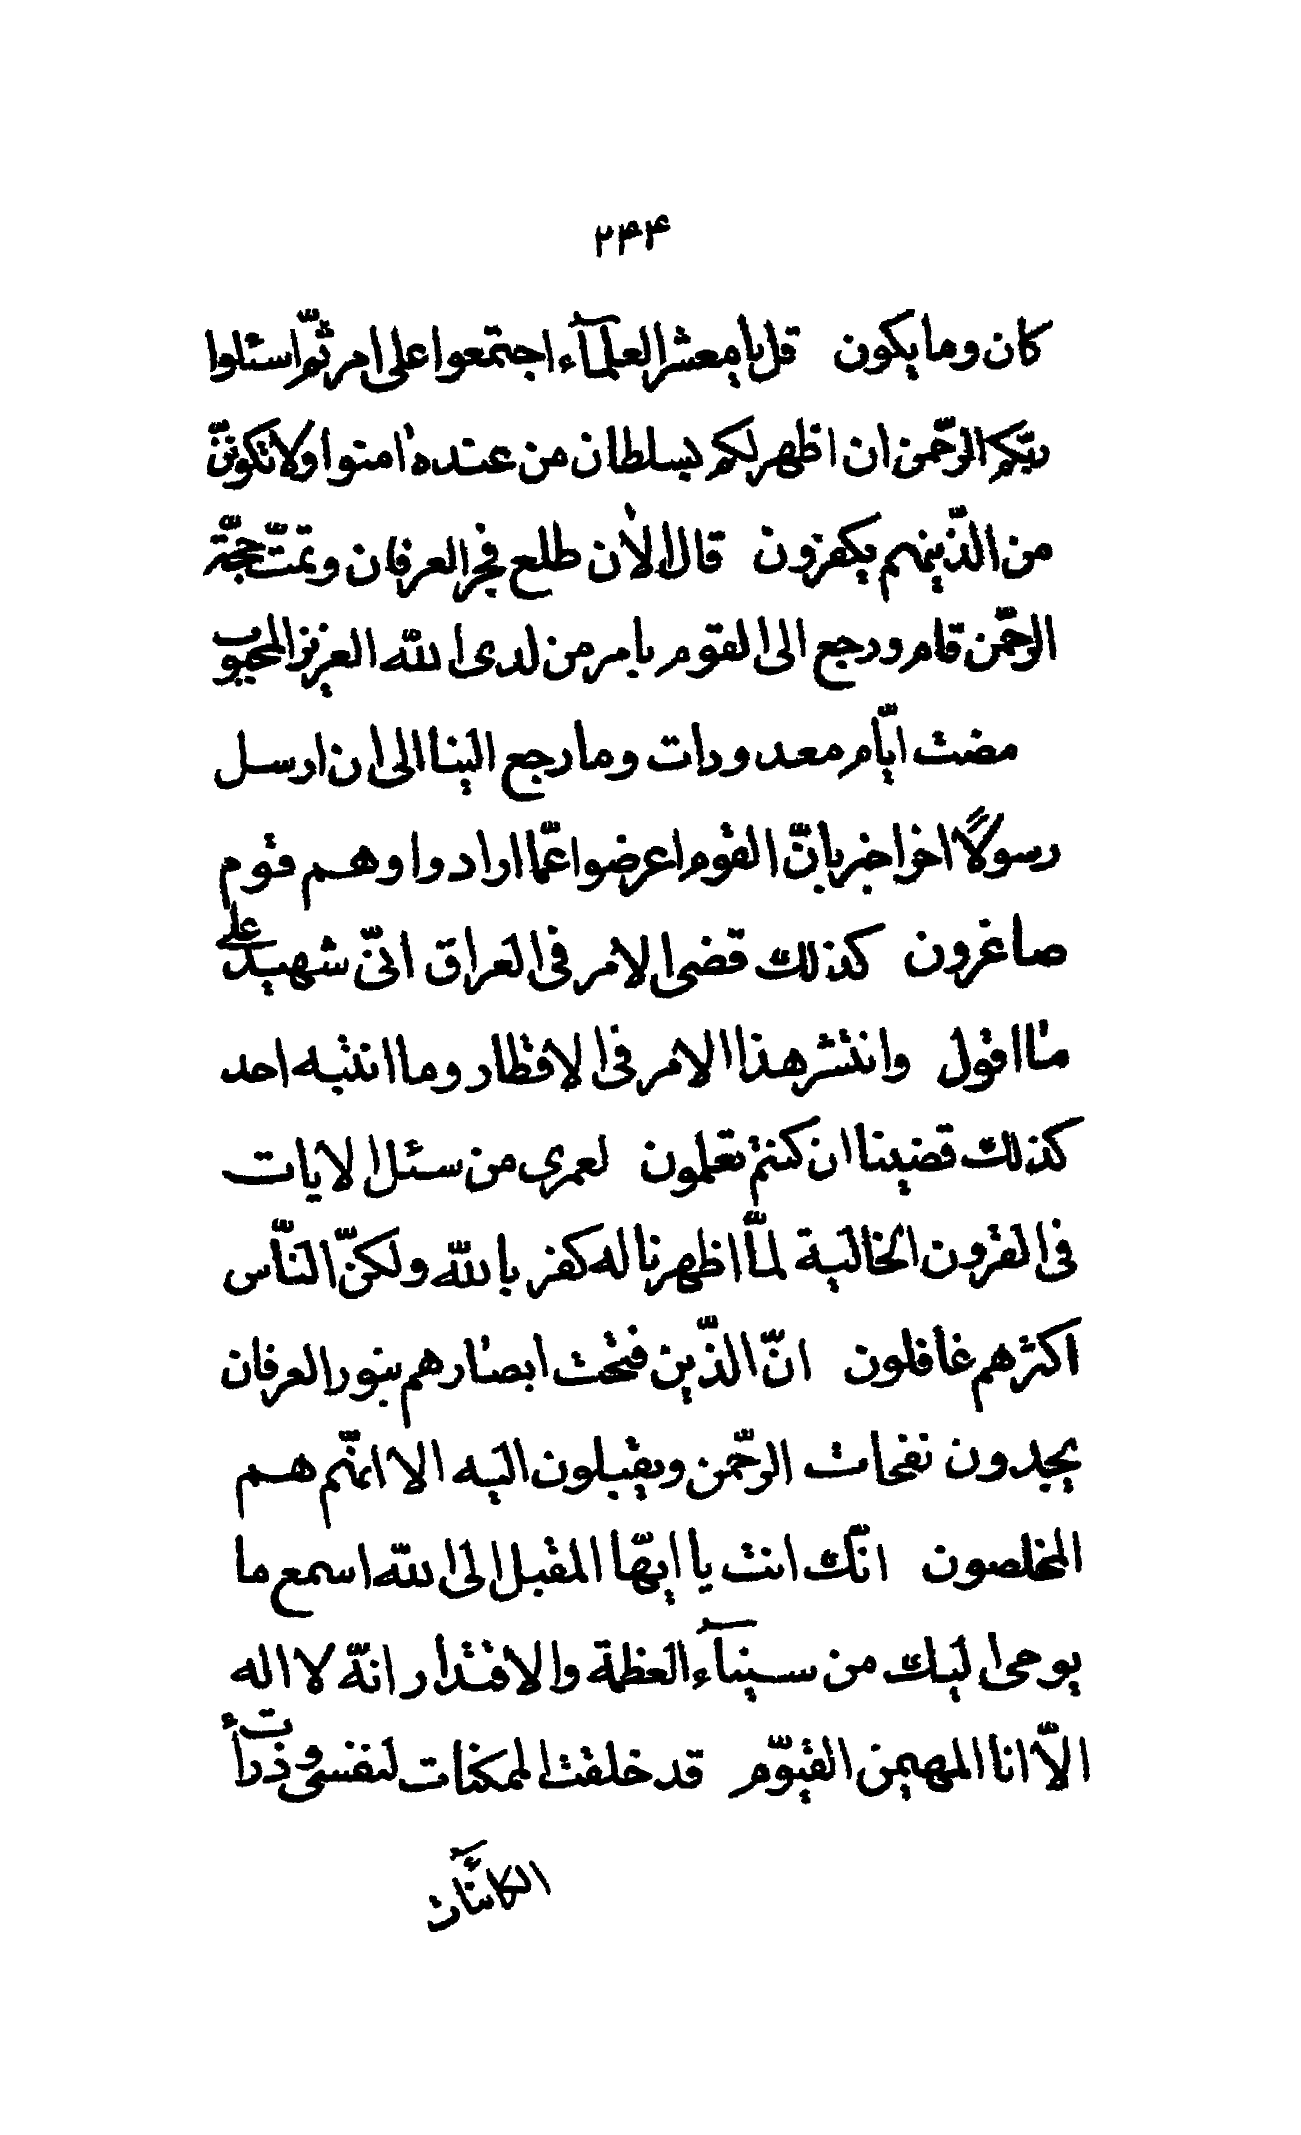 ۲۴۴
كان وما يكون قل يا معشر العلمآء اجتمعوا على امر ثمّ اسئلوا
ربّكم الرّحمن ان اظهر لكم بسلطان من عنده ٰامنوا ولا تكوننّ
من الّذينهم يكفرون قال الاٰن طلع فجر العرفان وتمّت حجّة
الرّحمن قام ورجع الى القوم بامر من لدى اللّه العزيز المحبوب
مضت ايّام معدودات وما رجع الينا الى ان ارسل
رسولاً اخر اخبر بانّ القوم اعرضوا عمّا ارادوا وهم قوم
صاغرون كذلك قضى الامر فى العراق انّى شهيد على
ما اقول وانتشر هذا الامر فى الاقطار وما انتبه احد
كذلك قضينا ان كنتم تعلمون لعمرى من سئل الايات
فى القرون الخالية لمّا اظهرنا له كفر باللّه ولكنّ النّاس
اكثرهم غافلون انّ الّذين فتحت ابصارهم بنور العرفان
يجدون نفحات الرّحمن ويقبلون اليه الا انّهم هم
المخلصون انّك انت يا ايّها المقبل الى اللّه اسمع ما
يوحى اليك من سينآء العظمة والاقتدار انّه لا اله
الّا انا المهيمن القيّوم قد خلقت الممكنات لنفسى وذرأت
الكآئنات